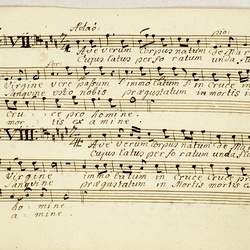 Adaò. pio:
VII Ave verum Corpus natum de Ma
Cujus latus perforatum unda,
for:
Virgine vere passum immolatum in cruce in
Sanguine esto nobis prægustatum in mortis in
Cru ce pro homine.
mor tis examine.
VII Ave verum Corpus natum de Ma
Cujus latus perforatum unda,
Virgine immolatum in Cruce Cruce pro
Sanguine prægustatum in Mortis mortis
ho mine
a mine.